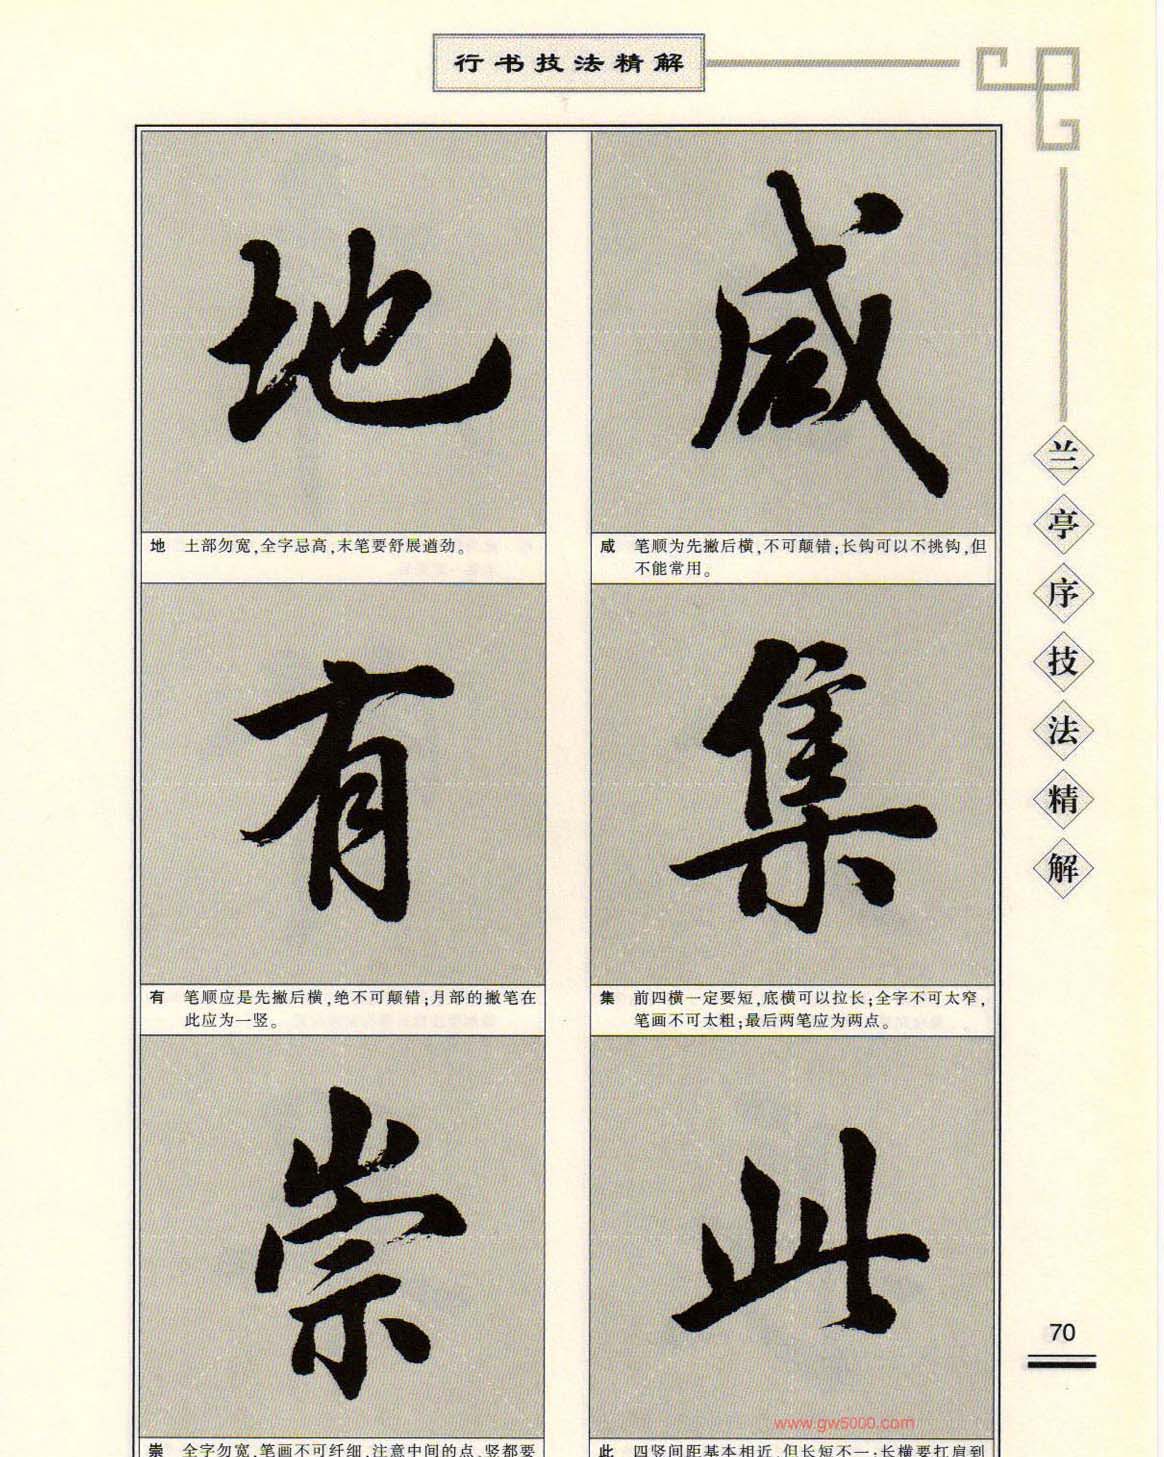 行书技法精解
咸
咸 笔顺为先撇后横,不可颠错;长钩可以不挑钩,但
不能常用。
集
集 前四横一定要短,底横可以拉长;全字不可太窄,
笔画不可太粗;最后两笔应为两点。
此
www.gw5000.com
此 四竖间距基本相近,但长短不一;长横要扛肩到
地
地 土部勿宽,全字忌高,末笔要舒展遒劲。
有
有 笔顺应是先撇后横,绝不可颠错;月部的撇笔在
此应为一竖。
崇
崇 全字勿宽,笔画不可纤细,注意中间的点、竖都要
兰亭序技法精解
70